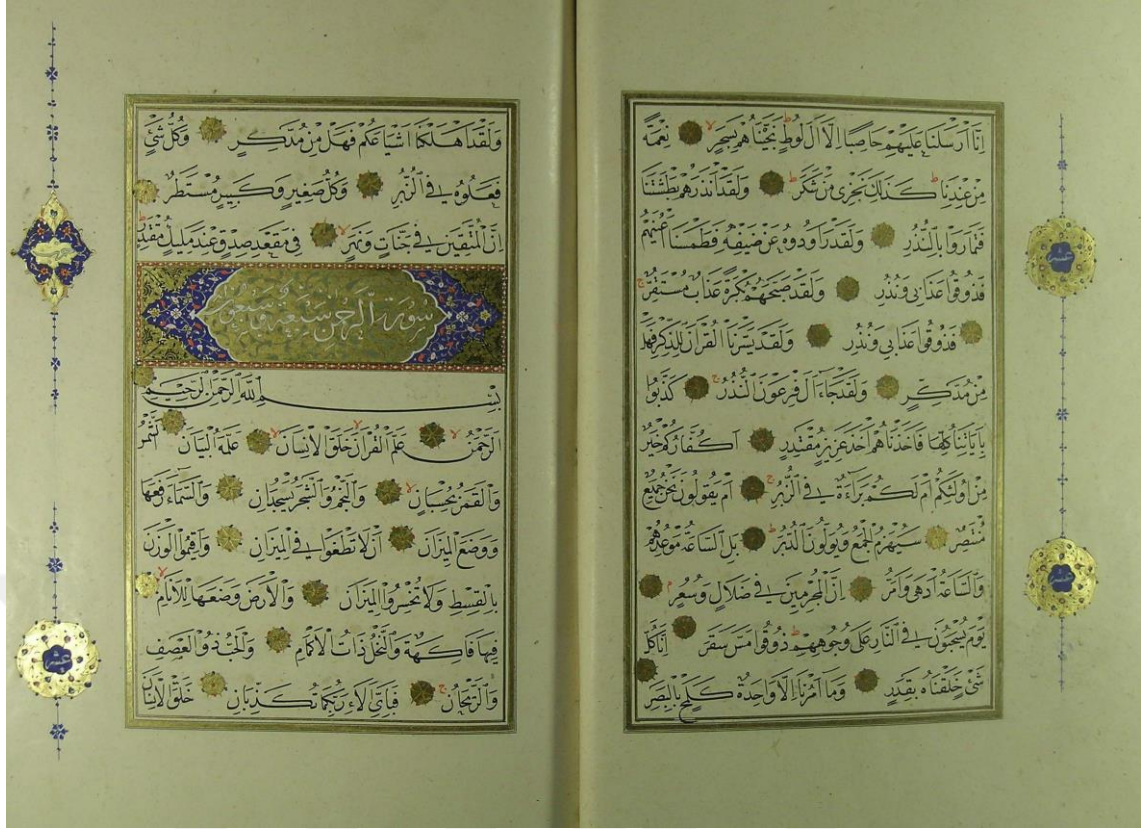 اِنَّا اَرْسَلْنَا عَلَيْهِمْ حَاصِبًا اِلَّا اٰلَ لُوطٍ نَجَّيْنَاهُمْ بِسَحَرٍ نِعْمَةً
مِنْ عِنْدِنَا كَذٰلِكَ نَجْزِى مَنْ شَكَرَ وَلَقَدْ اَنْذَرَهُمْ بَطْشَتَنَا
فَتَمَارَوْا بِالنُّذُرِ وَلَقَدْ رَاوَدُوهُ عَنْ ضَيْفِهٖ فَطَمَسْنَا اَعْيُنَهُمْ
فَذُوقُوا عَذَابِى وَنُذُرِ وَلَقَدْ صَبَّحَهُمْ بُكْرَةً عَذَابٌ مُسْتَقِرٌّ
فَذُوقُوا عَذَابِى وَنُذُرِ وَلَقَدْ يَسَّرْنَا الْقُرْاٰنَ لِلذِّكْرِ فَهَلْ
مِنْ مُدَّكِرٍ وَلَقَدْ جَاءَ اٰلَ فِرْعَوْنَ النُّذُرُ كَذَّبُوا
بِاٰيَاتِنَا كُلِّهَا فَاَخَذْنَاهُمْ اَخْذَ عَزِيزٍ مُقْتَدِرٍ اَكُفَّارُكُمْ خَيْرٌ
مِنْ اُولٰئِكُمْ اَمْ لَكُمْ بَرَاءَةٌ فِى الزُّبُرِ اَمْ يَقُولُونَ نَحْنُ جَمِيعٌ
مُنْتَصِرٌ سَيُهْزَمُ الْجَمْعُ وَيُوَلُّونَ الدُّبُرَ بَلِ السَّاعَةُ مَوْعِدُهُمْ
وَالسَّاعَةُ اَدْهٰى وَاَمَرُّ اِنَّ الْمُجْرِمِينَ فِى ضَلَالٍ وَسُعُرٍ
يَوْمَ يُسْحَبُونَ فِى النَّارِ عَلٰى وُجُوهِهِمْ ذُوقُوا مَسَّ سَقَرَ اِنَّا كُلَّ
شَىْءٍ خَلَقْنَاهُ بِقَدَرٍ وَمَا اَمْرُنَا اِلَّا وَاحِدَةٌ كَلَمْحٍ بِالْبَصَرِ
عشر
عشر
وَلَقَدْ اَهْلَكْنَا اَشْيَاعَكُمْ فَهَلْ مِنْ مُدَّكِرٍ وَكُلُّ شَىْءٍ
فَعَلُوهُ فِى الزُّبُرِ وَكُلُّ صَغِيرٍ وَكَبِيرٍ مُسْتَطَرٌ
اِنَّ الْمُتَّقِينَ فِى جَنَّاتٍ وَنَهَرٍ فِى مَقْعَدِ صِدْقٍ عِنْدَ مَلِيكٍ مُقْتَدِرٍ
سورة الرحمن سبع وسبعون
بِسْمِ اللّٰهِ الرَّحْمٰنِ الرَّحِيمِ
اَلرَّحْمٰنُ عَلَّمَ الْقُرْاٰنَ خَلَقَ الْاِنْسَانَ عَلَّمَهُ الْبَيَانَ اَلشَّمْسُ
وَالْقَمَرُ بِحُسْبَانٍ وَالنَّجْمُ وَالشَّجَرُ يَسْجُدَانِ وَالسَّمَاءَ رَفَعَهَا
وَوَضَعَ الْمِيزَانَ اَلَّا تَطْغَوْا فِى الْمِيزَانِ وَاَقِيمُوا الْوَزْنَ
بِالْقِسْطِ وَلَا تُخْسِرُوا الْمِيزَانَ وَالْاَرْضَ وَضَعَهَا لِلْاَنَامِ
فِيهَا فَاكِهَةٌ وَالنَّخْلُ ذَاتُ الْاَكْمَامِ وَالْحَبُّ ذُو الْعَصْفِ
وَالرَّيْحَانُ فَبِاَىِّ اٰلَاءِ رَبِّكُمَا تُكَذِّبَانِ خَلَقَ الْاِنْسَانَ
عشر